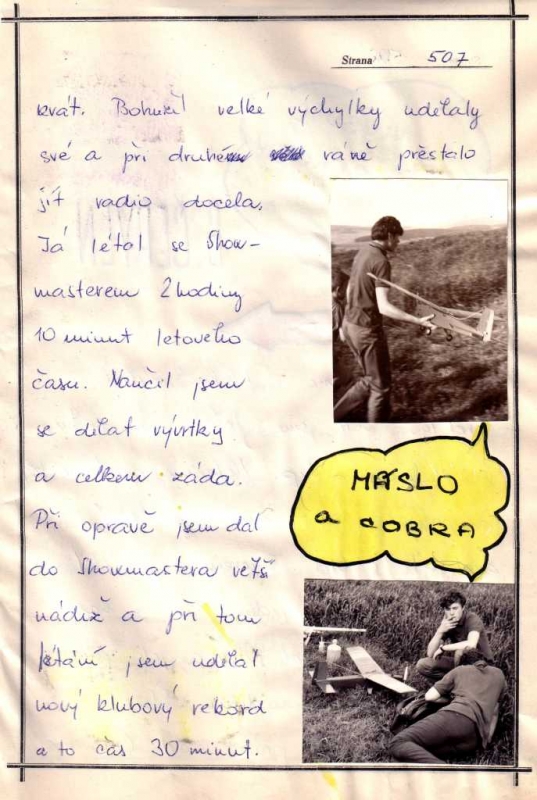 Strana 507
krát. Bohužel velké výchylky udělaly
své a při druhém ráně přestalo
jít radio docela.
Já létal se Show-
masterem 2 hodiny
10 minut letového
času. Naučil jsem
se dělat vývrtky
a celkem záda.
Při opravě jsem dal
do Showmastera větší
nádrž a při tom
létání jsem udělal
nový klubový rekord
a to čas 30 minut.
MÁSLO
a COBRA